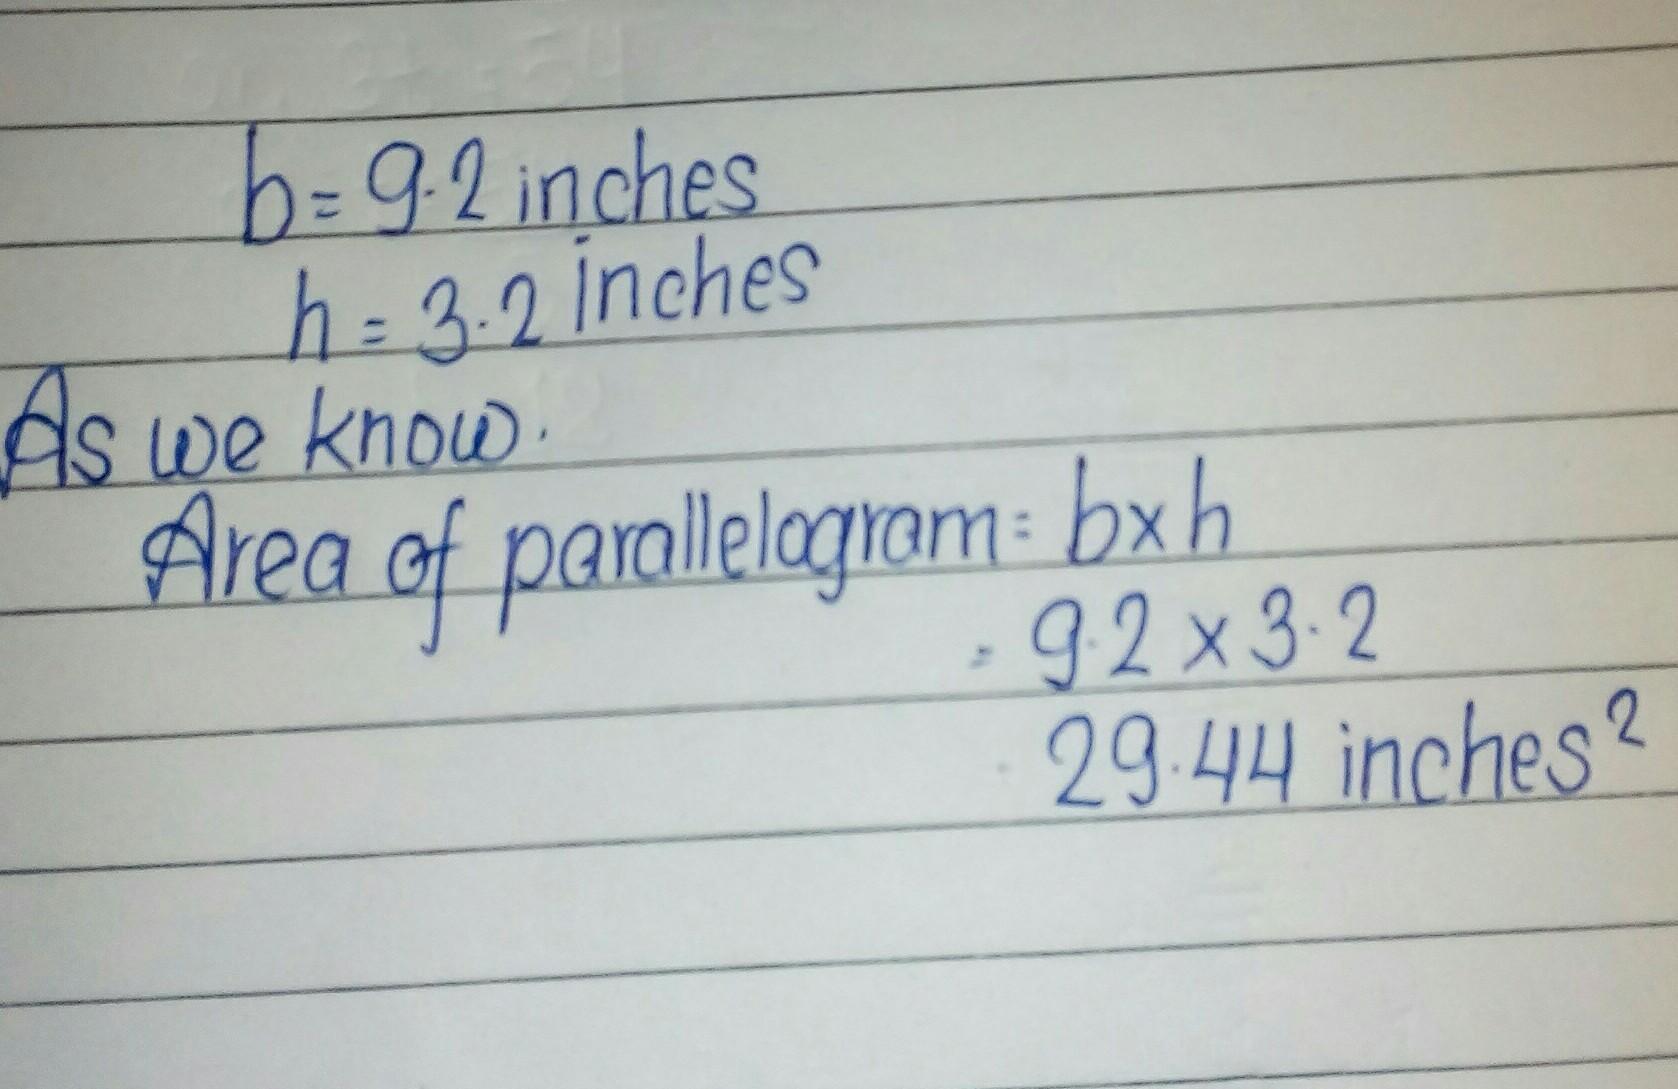 b= 9.2 inches
h = 3.2 inches
As we know.
Area of parallelogram = b×h
= 9.2 × 3.2
29.44 inches²